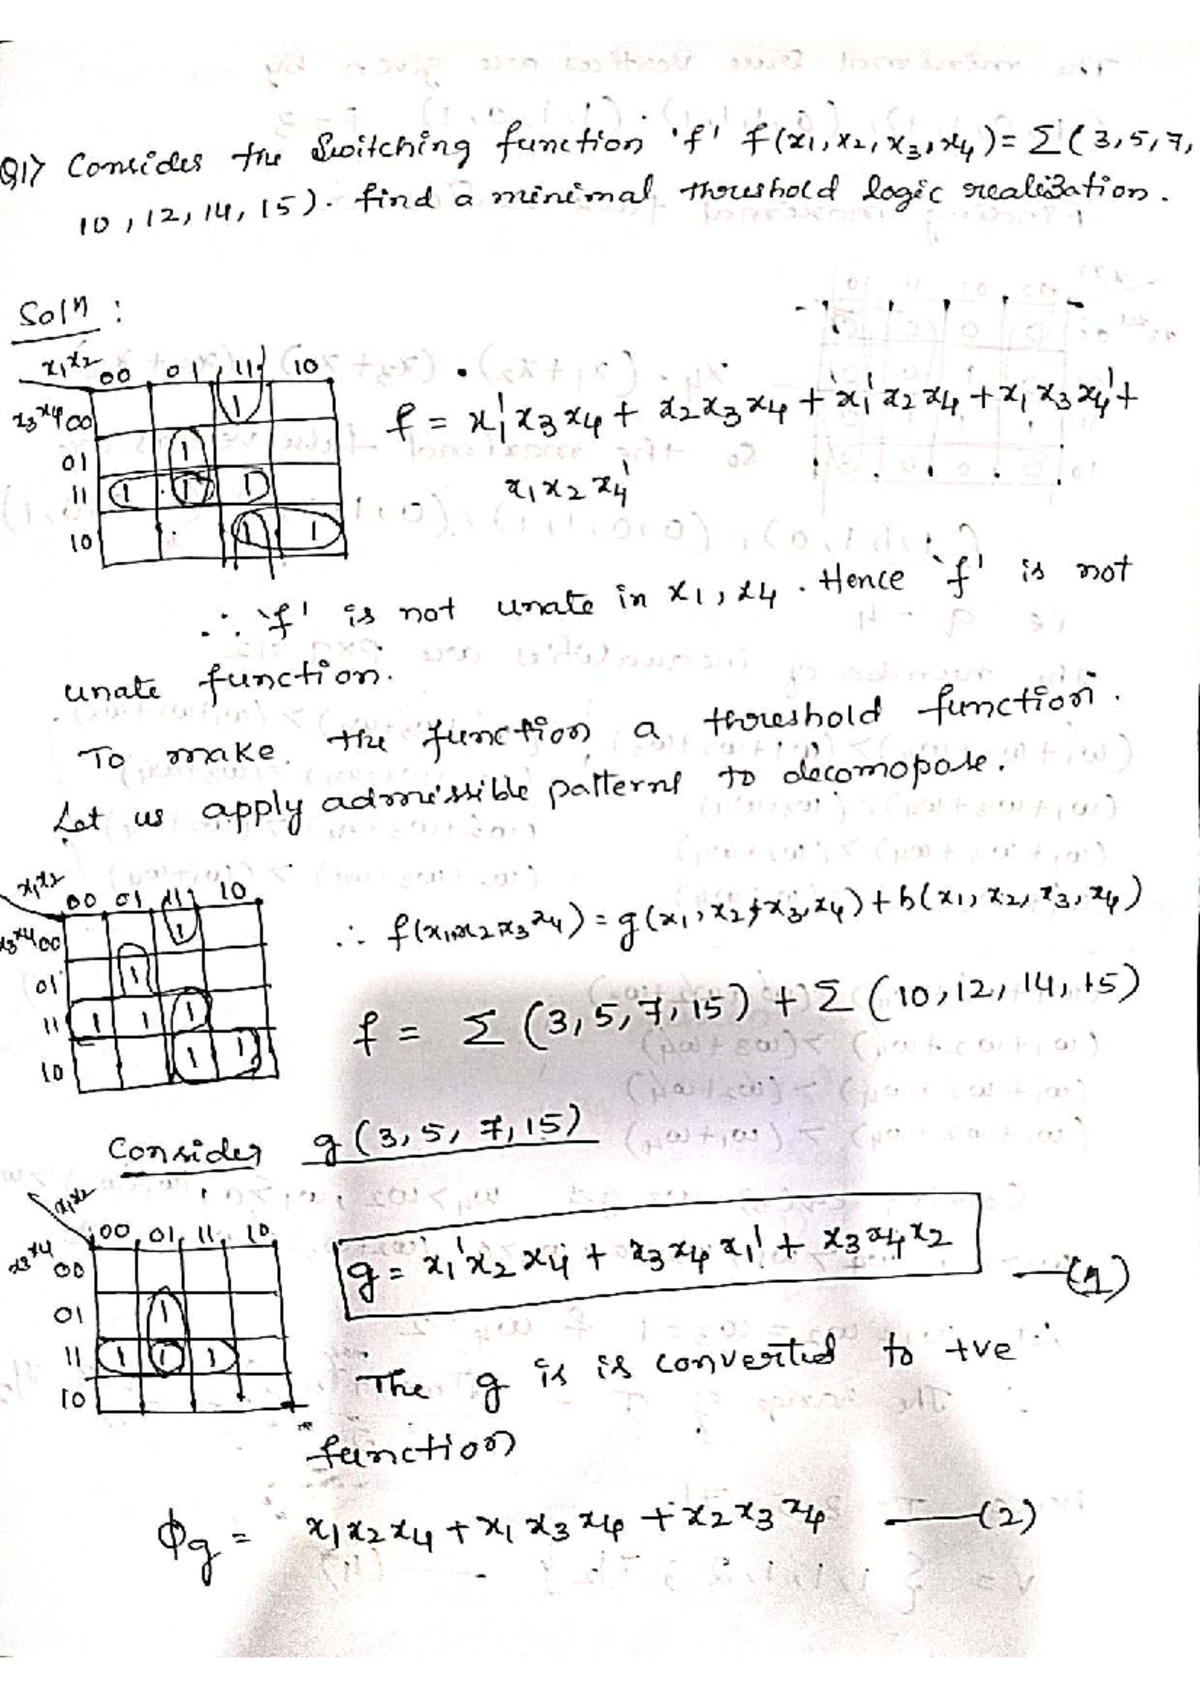 Q1> Consider the Switching function 'f' f(x1,x2,x3,x4)=Σ(3,5,7,
10,12,14,15). find a minimal threshold logic realization.
Soln :
x1x2 00 01 11 10
x3x4 00 1
01 1
11 1 1 1
10 1 1
f = x1'x3x4 + x2x3x4 + x1'x2x4 + x1x3x4' +
x1x2x4'
∴ 'f' is not unate in x1, x4. Hence 'f' is not
unate function.
To make the function a threshold function.
Let us apply admissible patterns to decomopose.
x1x2 00 01 11 10
x3x4 00 1
01 1
11 1 1 1
10 1 1
∴ f(x1x2x3x4) = g(x1,x2,x3,x4)+h(x1,x2,x3,x4)
f = Σ(3,5,7,15) + Σ(10,12,14,15)
Consider g(3,5,7,15)
x1x2 00 01 11 10
x3x4 00
01 1
11 1 1 1
10
g = x1'x2x4 + x3x4x1' + x3x4x2 —(1)
The g is is converted to +ve
function
Φg = x1x2x4 + x1x3x4 + x2x3x4 —(2)